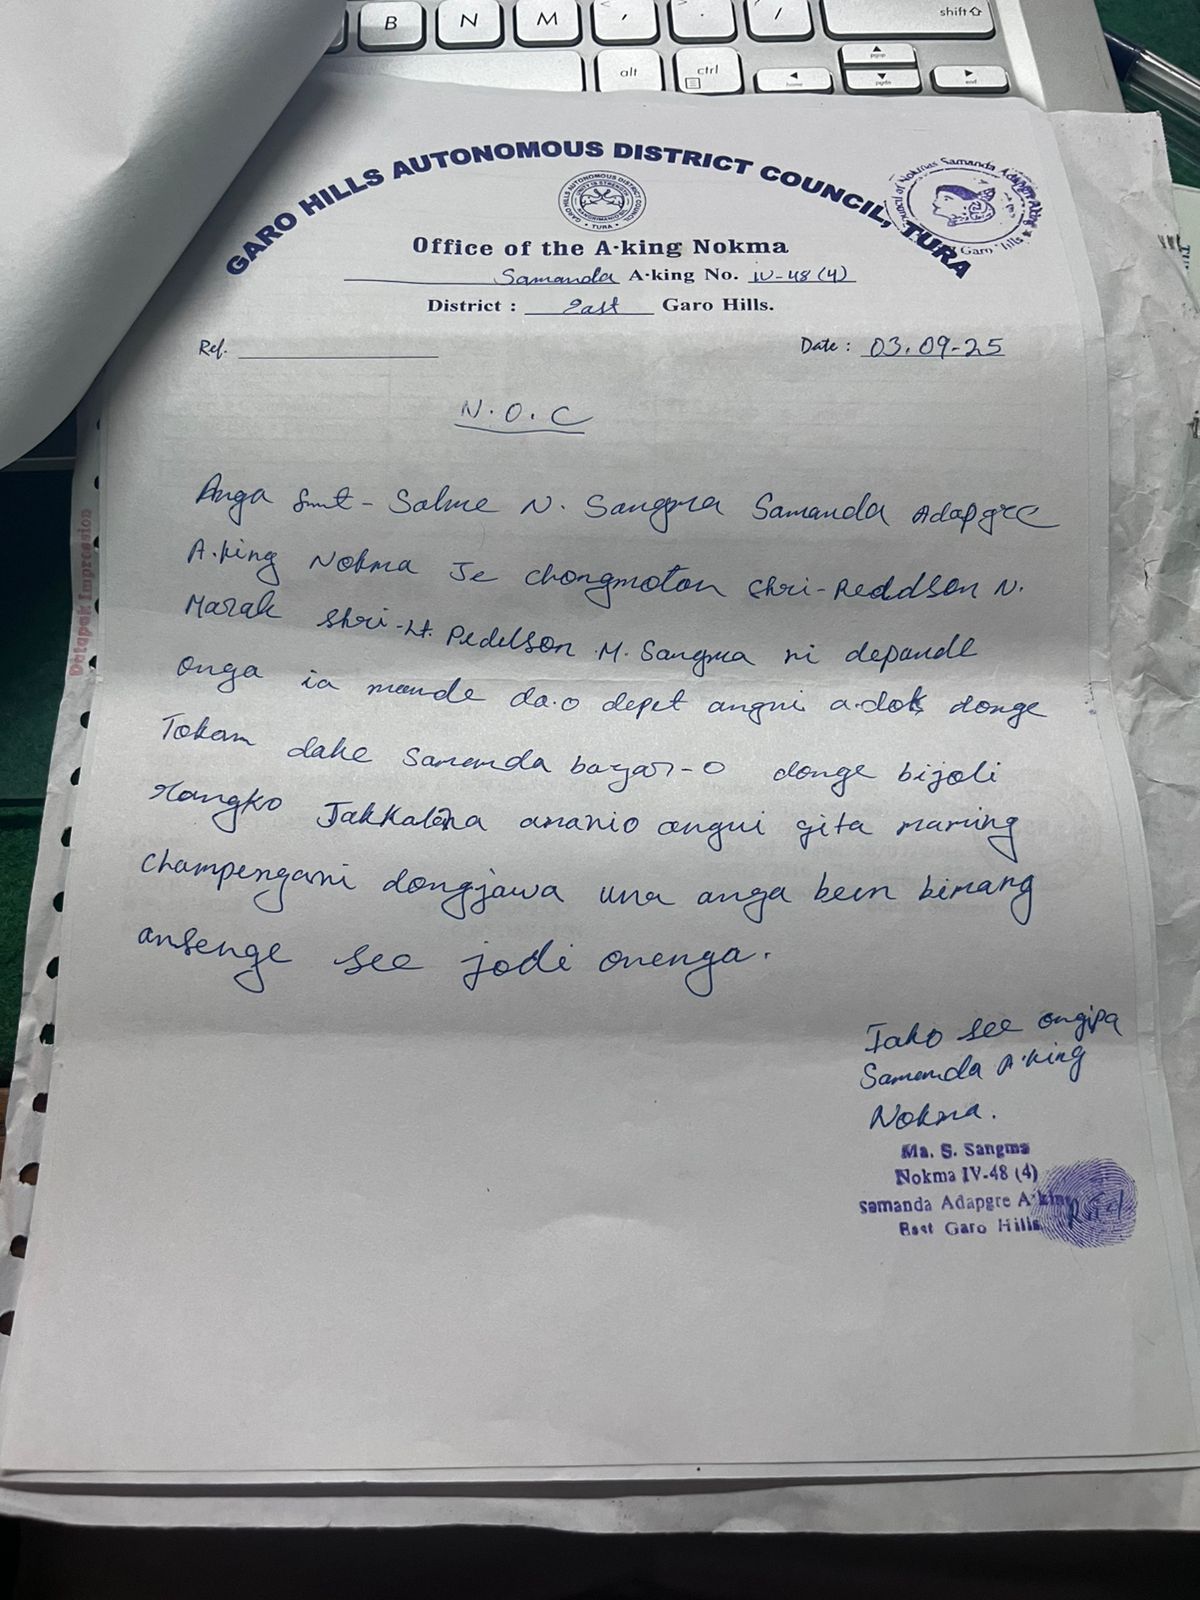 B N M
shift
alt ctrl
home pgup pgdn end
GARO HILLS AUTONOMOUS DISTRICT COUNCIL, TURA
GARO HILLS AUTONOMOUS DISTRICT COUNCIL
UNITY IS STRENGTH
TURA
Council of Nokmas Samanda Adapgre A·king
Garo Hills
Office of the A·king Nokma
Samanda A·king No. IV-48 (4)
District : East Garo Hills.
Ref.
Date : 03.09-25
N.O.C
Anga Smt - Salme N. Sangma Samanda Adapgre
A.king Nokma Je chongmotan Shri-Reddson N.
Marak Shri-Lt. Pedelson M. Sangma ni depande
onga ia mande da.o depet angni a.dok donge
Tokom dake Samanda bazar-o donge bijoli
rangko Jakkalna ananio angni gita maming
Champengani dongjawa una anga been bimang
ansenge see jodi onenga.
Iako see ongipa
Samanda A·king
Nokma.
Ma. S. Sangma
Nokma IV-48 (4)
Samanda Adapgre A·king
East Garo Hills
Dhlapak Impression